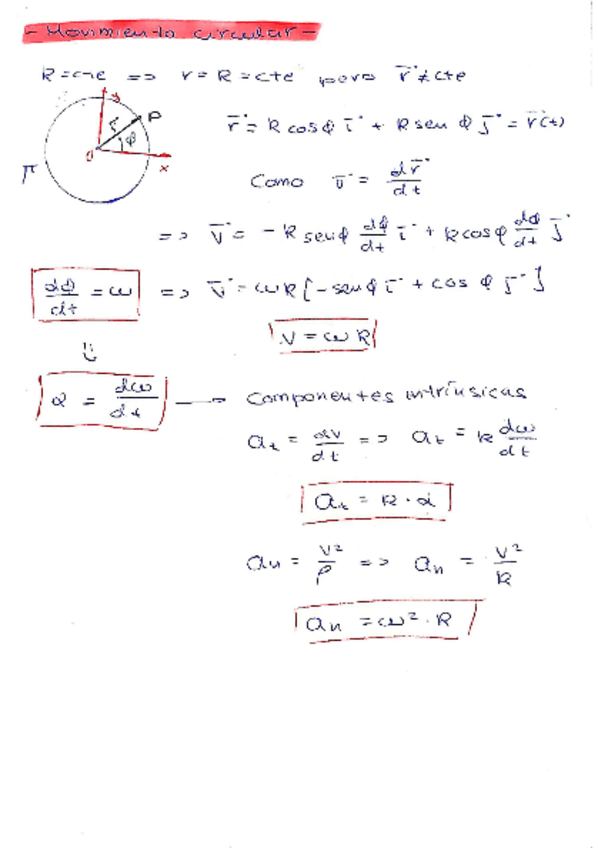 - Movimiento circular -
R = cte => r = R = cte pero r⃗ ≠ cte
y
P
r
φ
O
x
π
r⃗ = R cos φ i⃗ + R sen φ j⃗ = r⃗(t)
Como v⃗ = dr⃗/dt
=> v⃗ = - R sen φ dφ/dt i⃗ + R cos φ dφ/dt j⃗
dφ/dt = ω => v⃗ = ωR [- sen φ i⃗ + cos φ j⃗]
v = ω R
α = dω/dt → Componentes intrínsicas
at = dv/dt => at = R dω/dt
at = R · α
an = v²/ρ => an = v²/R
an = ω² · R